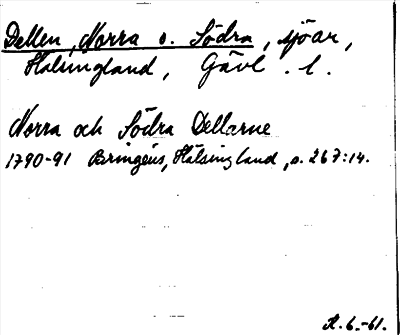 Dellen, Norra o. Södra, sjöar,
Hälsingland, Gävl. l.
Norra och Södra Dellarne
1790-91 Bringéus, Hälsingland, s. 267:14.
R. 6.-61.